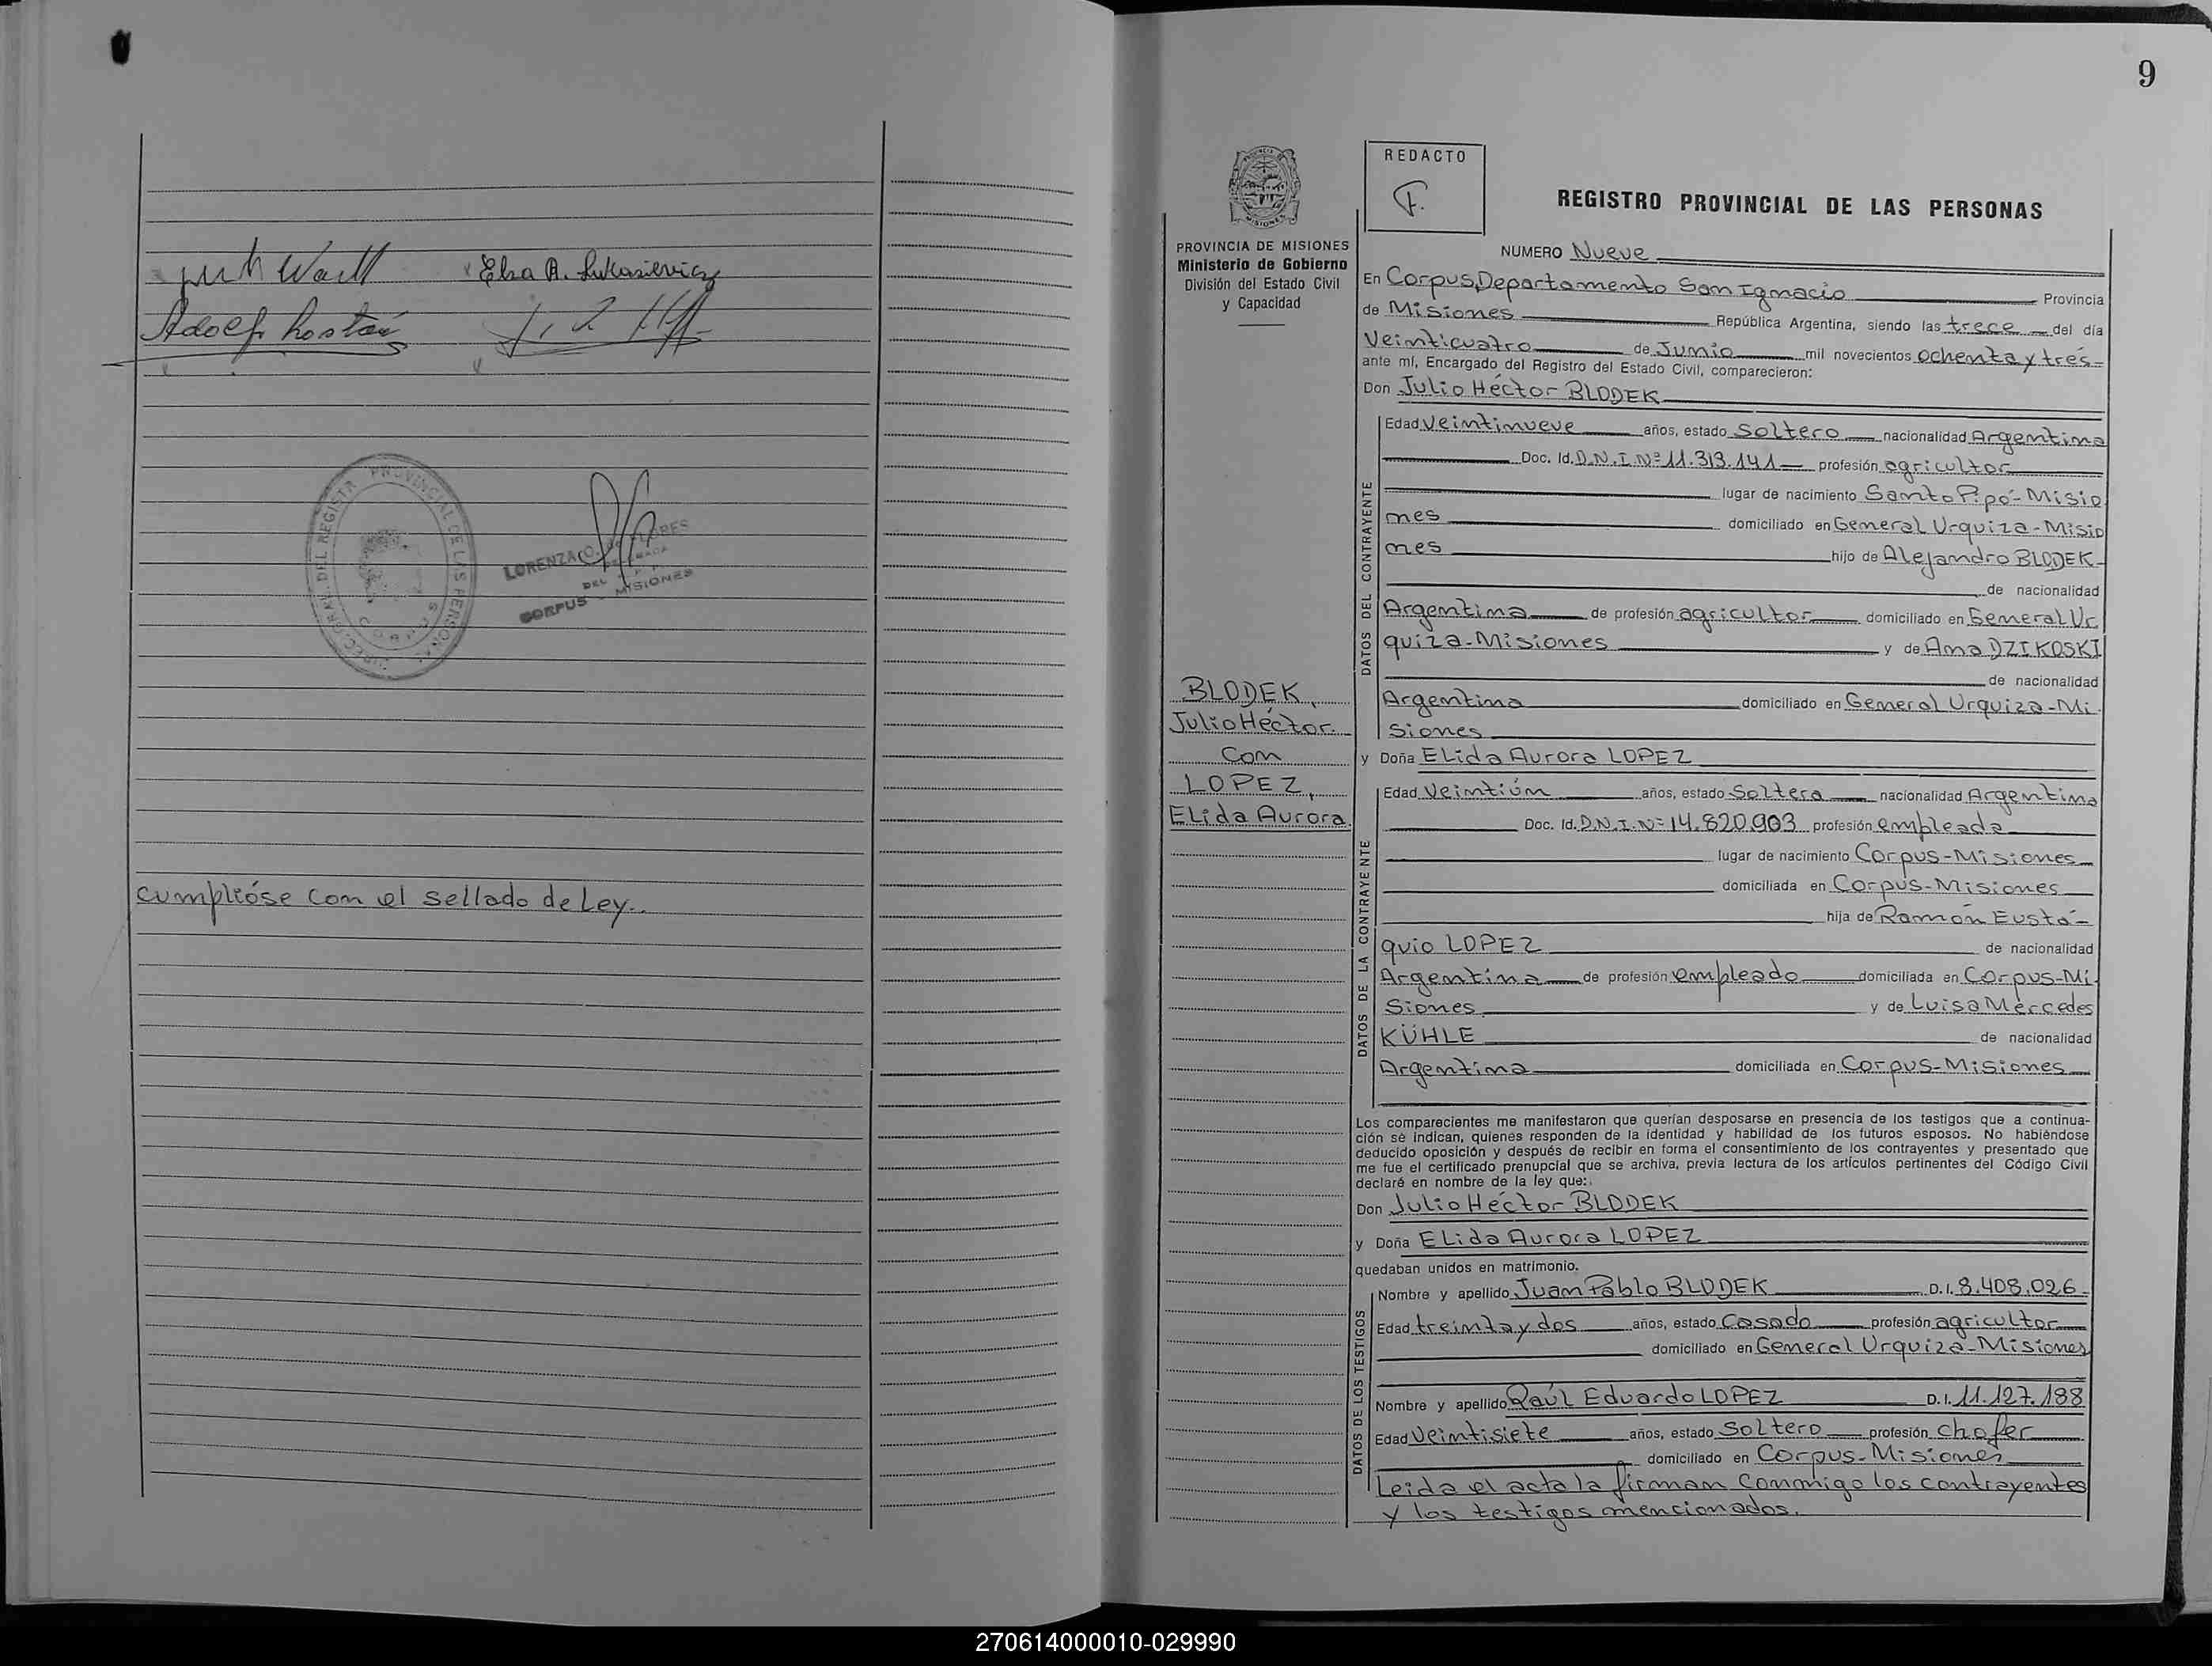 Elsa A. Lukasievicz
DIREC. GRAL. DEL REGISTR PROVINCIAL DE LAS PERSONAS
CORPUS
LORENZA
CORPUS - MISIONES
cumplióse con el sellado de Ley.
9
PROVINCIA DE MISIONES
Ministerio de Gobierno
División del Estado Civil
y Capacidad
BLODEK,
Julio Héctor.
Con
LOPEZ,
Elida Aurora
REDACTO
F.
REGISTRO PROVINCIAL DE LAS PERSONAS
NUMERO Nueve
En Corpus, Departamento San Ignacio Provincia
de Misiones República Argentina, siendo las trece del día
Veinticuatro de Junio mil novecientos ochenta y tres
ante mí, Encargado del Registro del Estado Civil, comparecieron:
Don Julio Héctor BLODEK
DATOS DEL CONTRAYENTE
Edad Veintinueve años, estado Soltero nacionalidad Argentina
Doc. Id. D.N.I.Nº 11.313.141 profesión agricultor
lugar de nacimiento Santo Pipó-Misio
nes domiciliado en General Urquiza-Misio
nes hijo de Alejandro BLODEK
de nacionalidad
Argentina de profesión agricultor domiciliado en General Ur
quiza-Misiones y de Ana DZIKOSKI
de nacionalidad
Argentina domiciliado en General Urquiza-Mi
siones
y Doña Elida Aurora LOPEZ
DATOS DE LA CONTRAYENTE
Edad Veintiún años, estado Soltera nacionalidad Argentina
Doc. Id. D.N.I.Nº 14.820.903 profesión empleada
lugar de nacimiento Corpus-Misiones
domiciliada en Corpus-Misiones
hija de Ramón Eustá-
quio LOPEZ de nacionalidad
Argentina de profesión empleado domiciliada en Corpus-Mi
siones y de Luisa Mercedes
KÜHLE de nacionalidad
Argentina domiciliada en Corpus-Misiones
Los comparecientes me manifestaron que querían desposarse en presencia de los testigos que a continua-
ción se indican, quienes responden de la identidad y habilidad de los futuros esposos. No habiéndose
deducido oposición y después de recibir en forma el consentimiento de los contrayentes y presentado que
me fue el certificado prenupcial que se archiva, previa lectura de los artículos pertinentes del Código Civil
declaré en nombre de la ley que:
Don Julio Héctor BLODEK
y Doña Elida Aurora LOPEZ
quedaban unidos en matrimonio.
DATOS DE LOS TESTIGOS
Nombre y apellido Juan Pablo BLODEK D.I. 8.408.026
Edad treinta y dos años, estado Casado profesión agricultor
domiciliado en General Urquiza-Misiones
Nombre y apellido Raúl Eduardo LOPEZ D.I. 11.127.188
Edad Veintisiete años, estado Soltero profesión chofer
domiciliado en Corpus-Misiones
Leída el acta la firman conmigo los contrayentes
y los testigos mencionados.
270614000010-029990